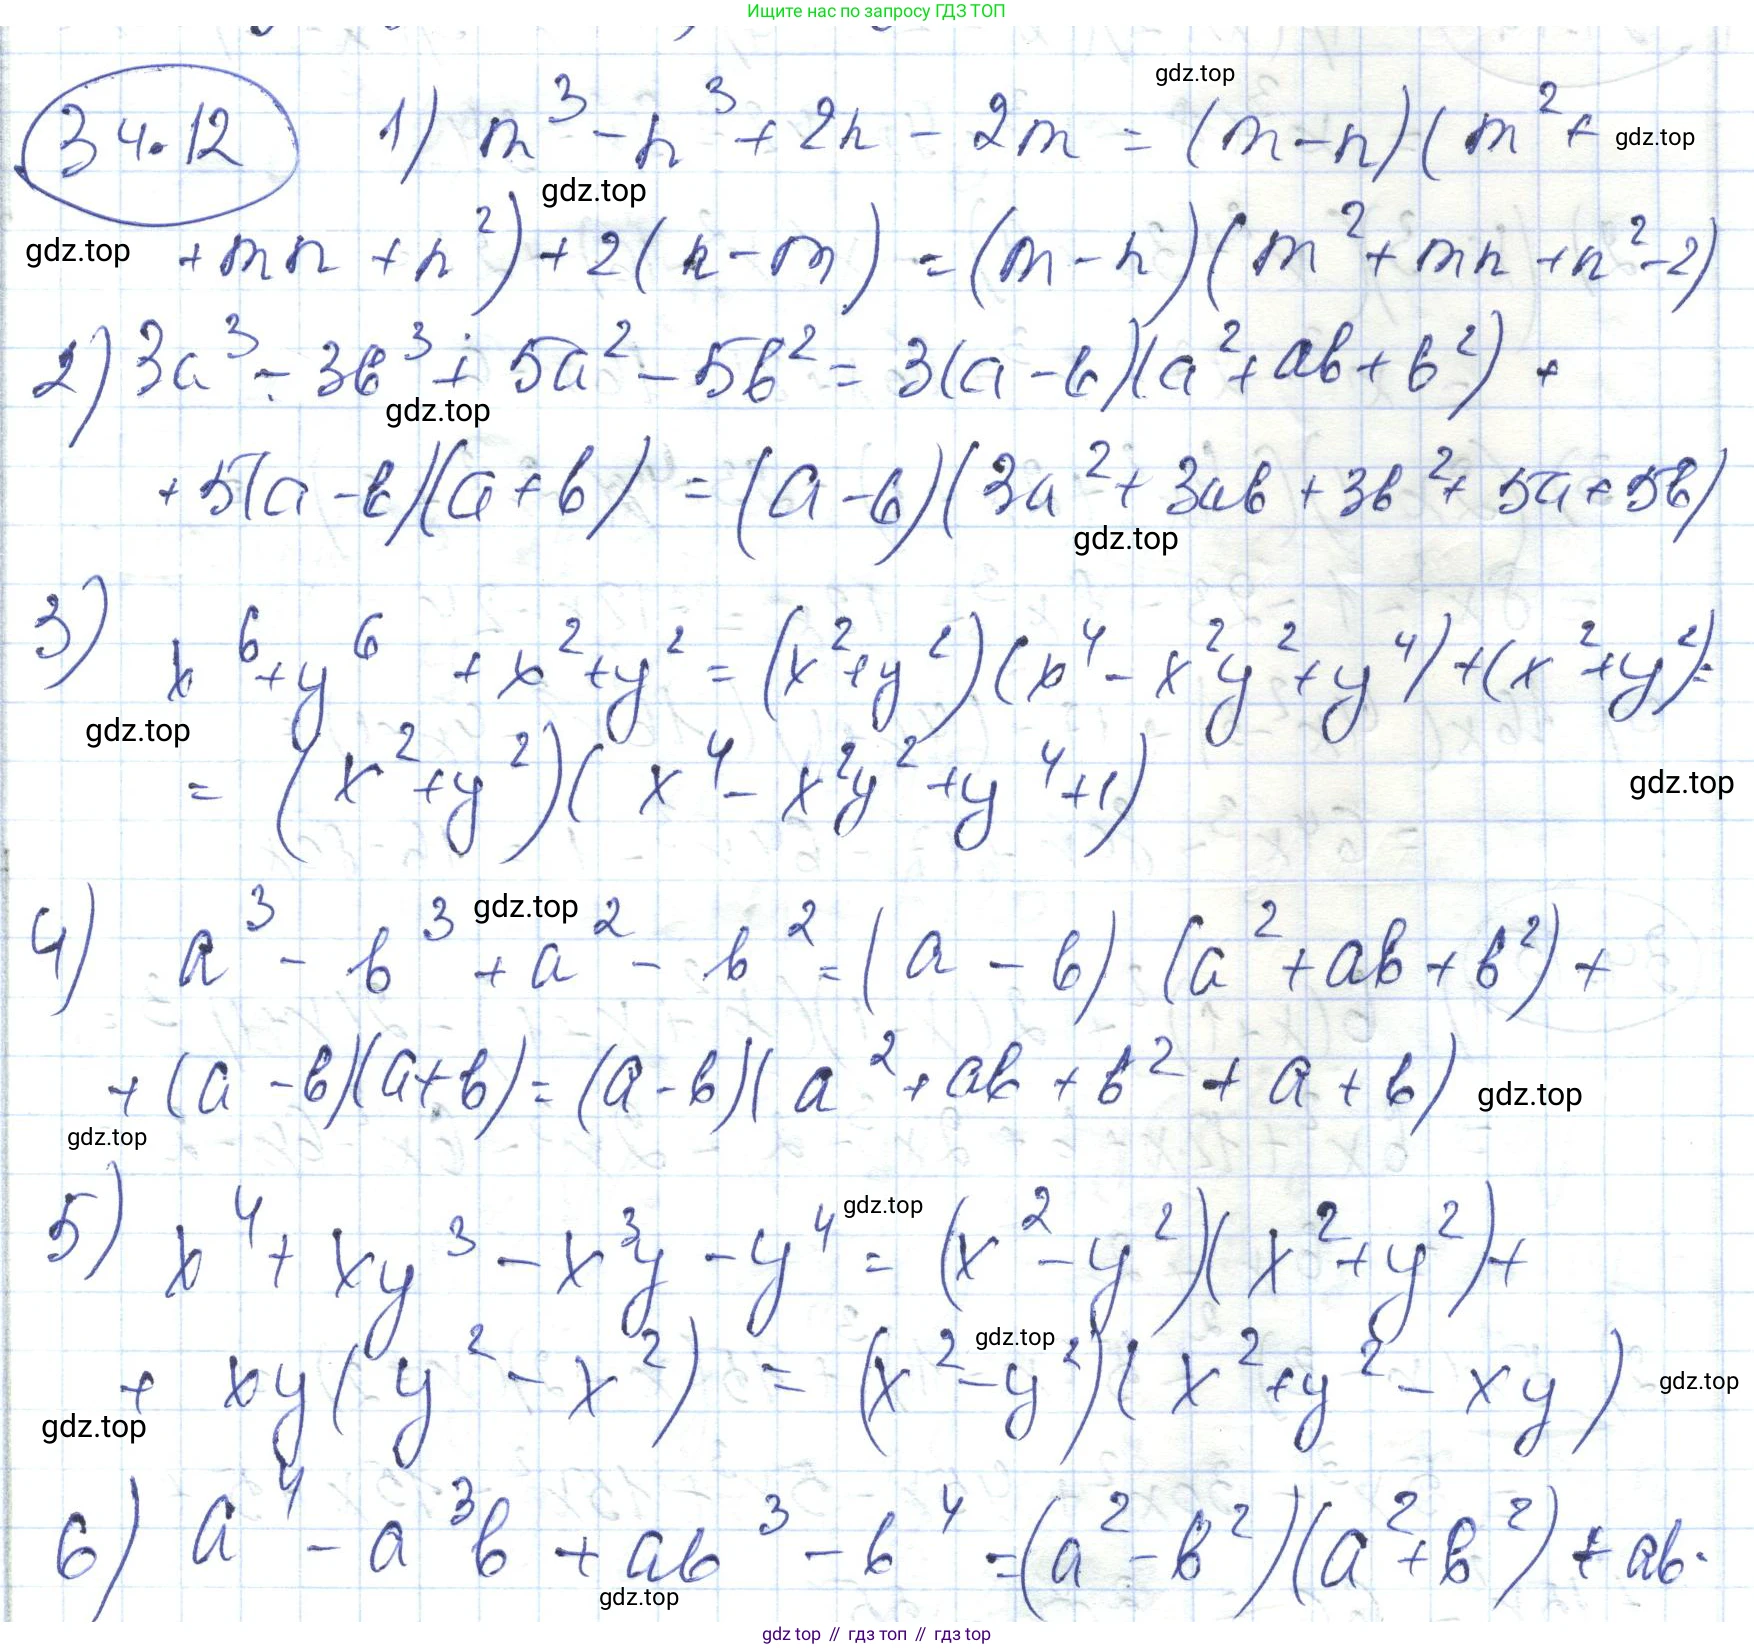 Ищите нас по запросу ГДЗ ТОП
gdz.top
34.12 1) m³ - n³ + 2n - 2m = (m - n)(m² + gdz.top
gdz.top
gdz.top + mn + n²) + 2(n - m) = (m - n)(m² + mn + n² - 2)
2) 3a³ - 3b³ + 5a² - 5b² = 3(a - b)(a² + ab + b²) +
gdz.top
+ 5(a - b)(a + b) = (a - b)(3a² + 3ab + 3b² + 5a + 5b)
gdz.top
3) x⁶ + y⁶ + x² + y² = (x² + y²)(x⁴ - x²y² + y⁴) + (x² + y²) =
gdz.top
= (x² + y²)(x⁴ - x²y² + y⁴ + 1) gdz.top
gdz.top
4) a³ - b³ + a² - b² = (a - b) (a² + ab + b²) +
+ (a - b)(a + b) = (a - b)(a² + ab + b² + a + b) gdz.top
gdz.top
gdz.top
5) x⁴ + xy³ - x³y - y⁴ = (x² - y²)(x² + y²) +
gdz.top
+ xy(y² - x²) = (x² - y²)(x² + y² - xy) gdz.top
gdz.top
6) a⁴ - a³b + ab³ - b⁴ = (a² - b²)(a² + b²) + ab·
gdz.top
gdz.top // гдз топ // гдз top